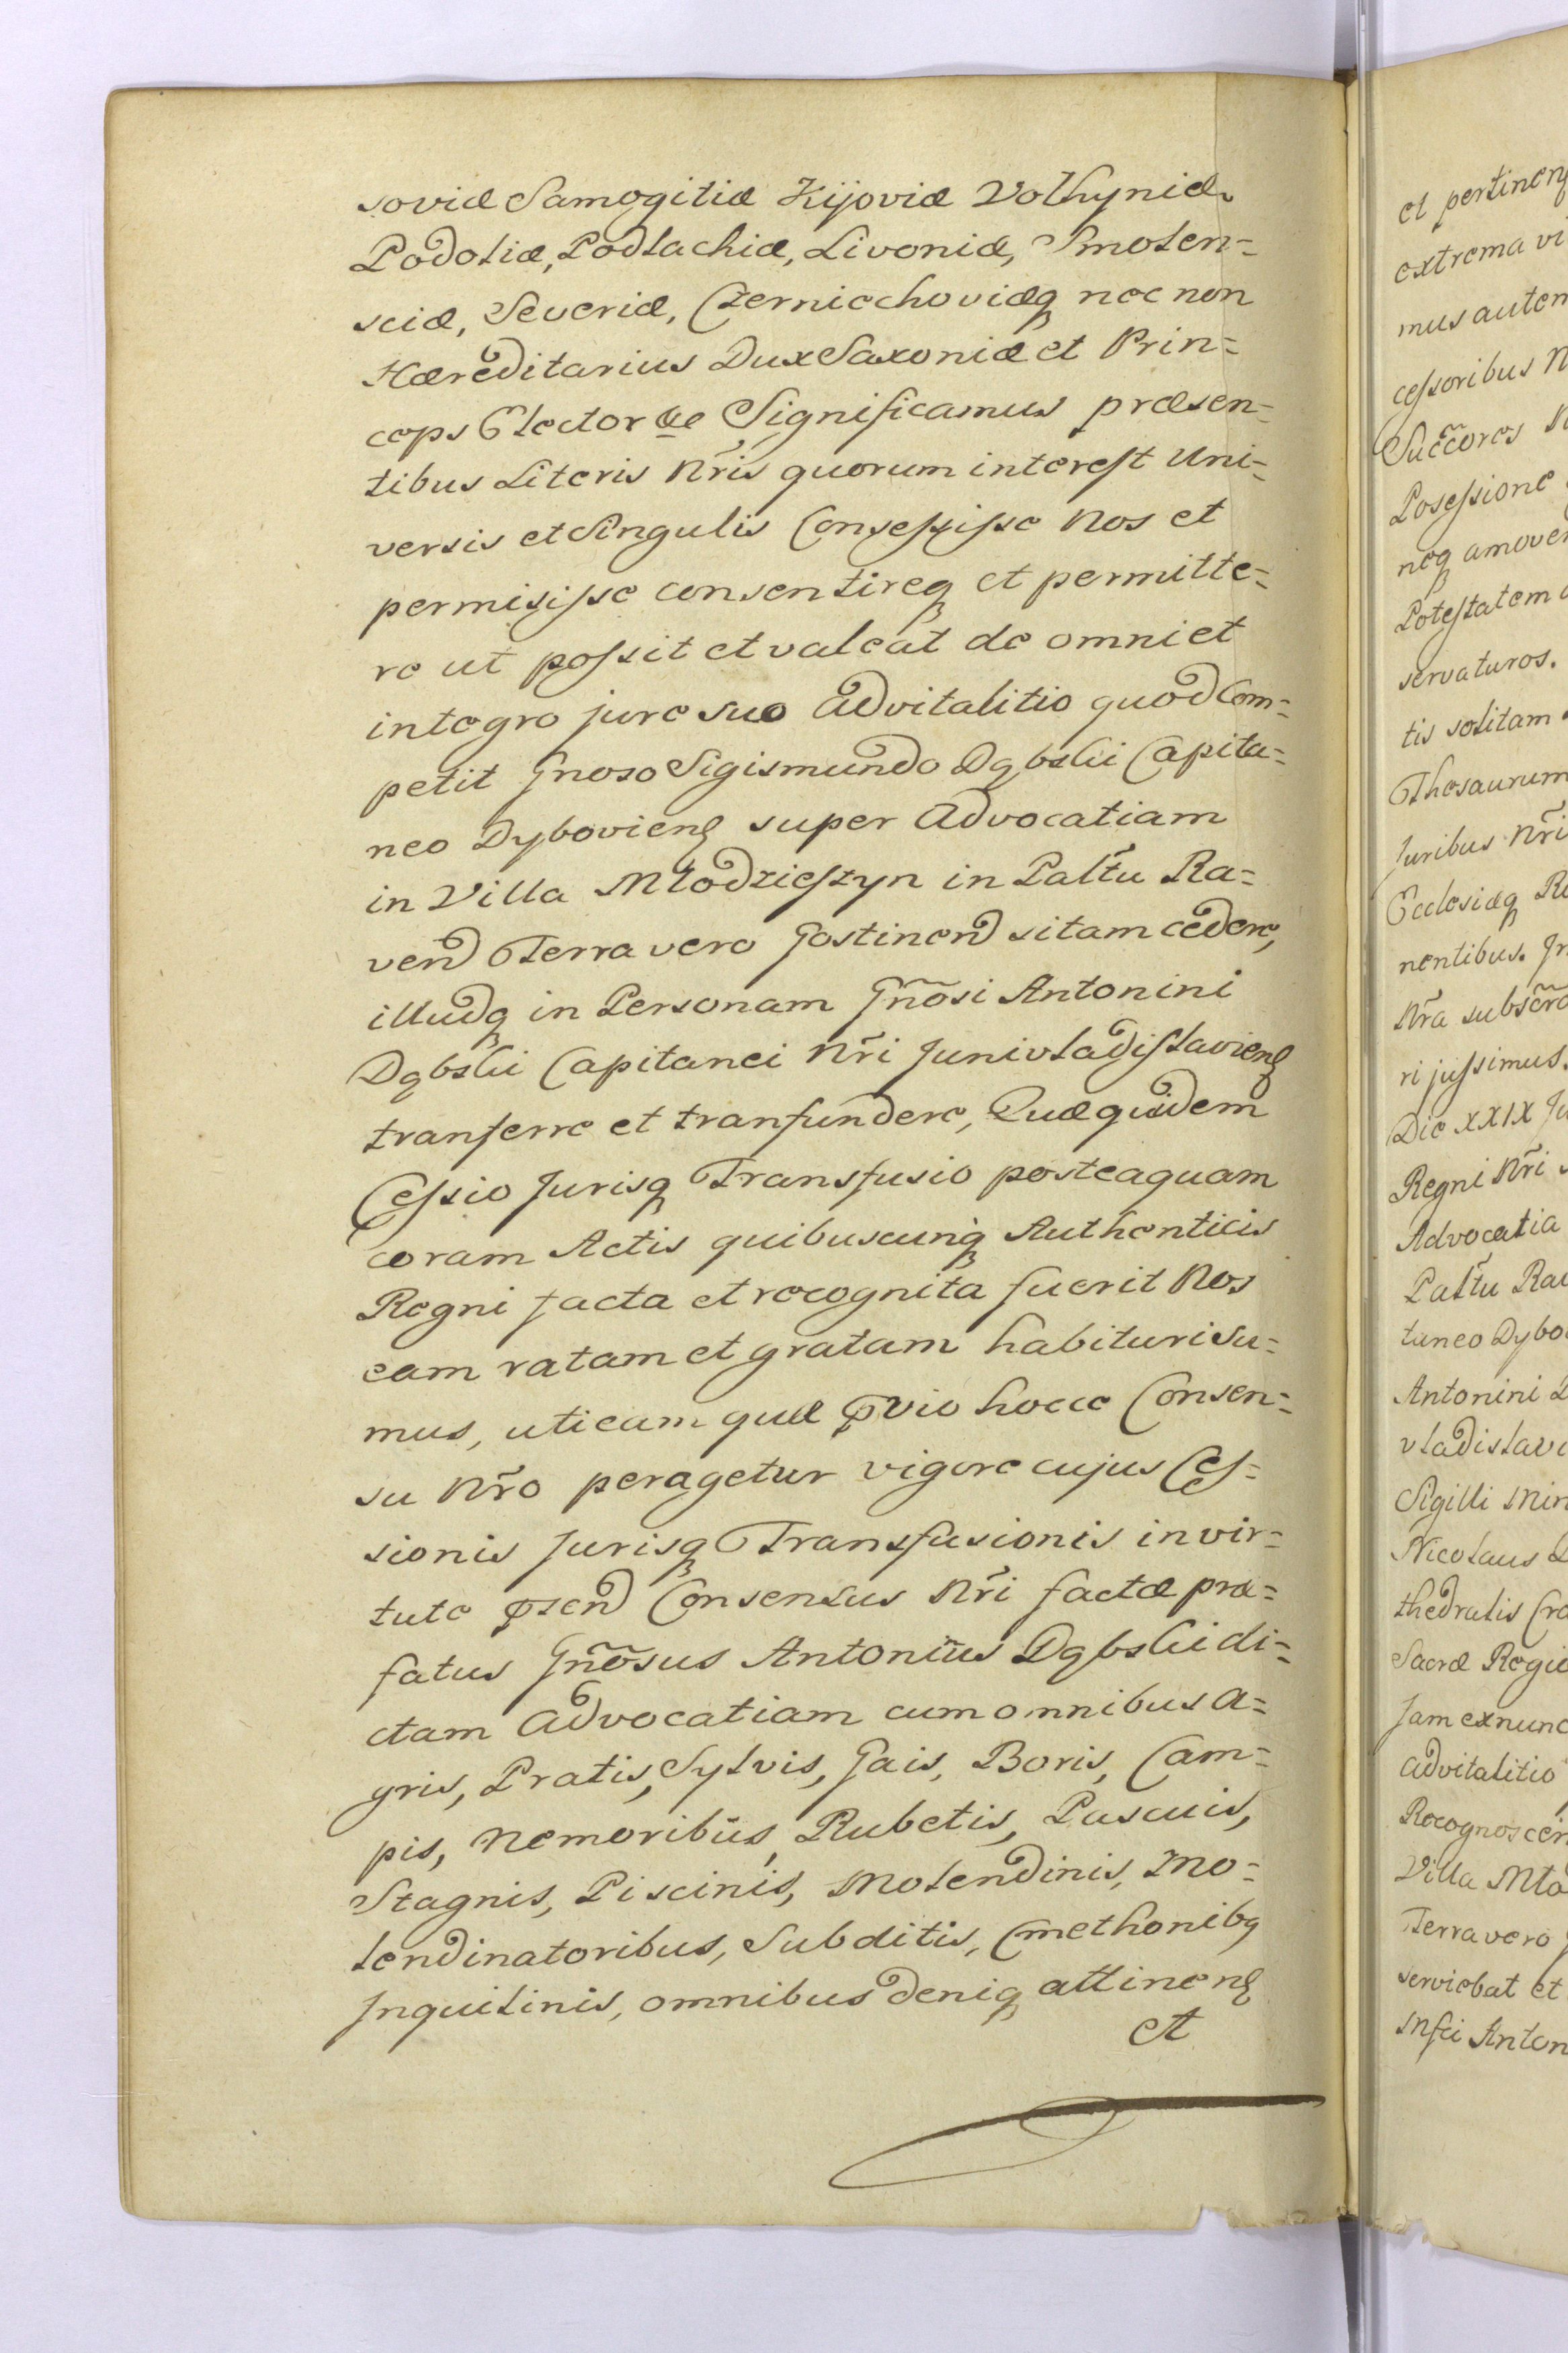 soviæ Samogitiæ Kijoviæ Volhyniæ
Podoliæ, Podlachiæ, Livoniæ, Smolen=
sciæ, Severiæ, Czerniechoviæq nec non
Hæreditarius Dux Saxoniæ et Prin=
ceps Elector &c Significamus præsen=
tibus Literis Nr̃is quorum interest Uni=
versis et Singulis Consessisse Nos et
permisisse consentireq et permitte=
re ut possit et valeat de omni et
integro jure suo advitalitio quod Com=
petit Gnoso Sigismundo Dąbski Capita=
neo Dybovien super Advocatiam
in Villa Młodzieszyn in Pal̃tu Ra=
ven Terra vero Gostinen sitam cedere,
illudq in Personam Gñosi Antonini
Dąbski Capitanei Nr̃i Junivladislavien
tranferre et tranfundere, Quæquidem
Cessio Jurisq Transfusio posteaquam
coram Actis quibuscunq Authenticis
Regni facta et recognita fuerit Nos
eam ratam et gratam habituri su=
mus, uti eam quæ p̃vio hocce Consen=
su Nr̃o peragetur vigore cujus Ces=
sionis Jurisq Transfusionis in vir=
tute p̃sen Consensus Nr̃i factæ præ=
fatus Gñosus Antonius Dąbski di=
ctam Advocatiam cum omnibus a=
gris, Pratis, Sylvis, Gais, Boris, Cam=
pis, Nemoribus, Rubetis, Pascuis,
Stagnis, Piscinis, Molendinis, Mo=
lendinatoribus, Subditis, Cmethonibq
Inquilinis, omnibus deniq attinen
et
et pertinen
extrema vi
mus autem
cessoribus N
Succ̃ores
Posessione
neq amove
Potestatem
servaturos.
tis solitam
Thesaurum
Juribus Nr̃i
Ecclesiæq R
nentibus. In
Nr̃a subscr̃
ri jussimus.
Die XXIX Ju
Regni Nr̃i
Advocatia
Pal̃tu Ra
taneo Dybo
Antonini D
vladislavi
Sigilli Min
Nicolaus
thedralis Cra
Sacræ Regiæ
Jam exnunc
advitalitio
Recognoscen
Villa Mło
Terra vero
serviebat et
Anton